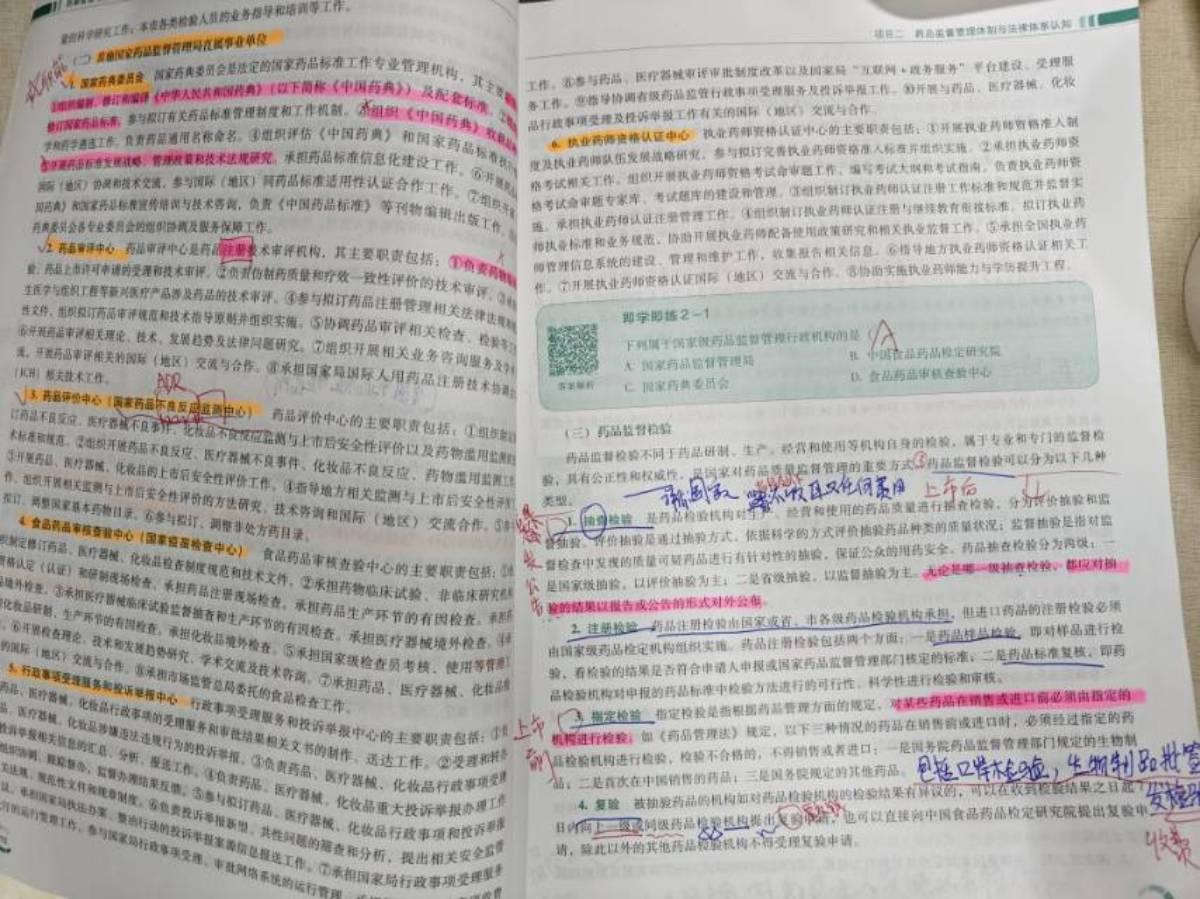 量的科学研究工作；本市各类检验人员的业务指导和培训等工作。
(二) 其他国家药品监督管理局直属事业单位
1. 国家药典委员会 国家药典委员会是法定的国家药品标准工作专业管理机构，其主要
①组织编制、修订和编译《中华人民共和国药典》(以下简称《中国药典》) 及配套标准。②
修订国家药品标准，参与拟订有关药品标准管理制度和工作机制。③组织《中国药典》收载
学和药学遴选工作。负责药品通用名称命名。④组织评估《中国药典》和国家药品标准执行
⑤开展药品标准发展战略、管理政策和技术法规研究，承担药品标准信息化建设工作。⑥开展
国际 (地区) 协调和技术交流，参与国际 (地区) 间药品标准适用性认证合作工作。⑦组织开展
国药典》和国家药品标准宣传培训与技术咨询，负责《中国药品标准》等刊物编辑出版工作。
药典委员会各专业委员会的组织协调及服务保障工作。
2. 药品审评中心 药品审评中心是药品注册技术审评机构，其主要职责包括：①负责药物临
验、药品上市许可申请的受理和技术审评。②负责仿制药质量和疗效一致性评价的技术审评。③
生医学与组织工程等新兴医疗产品涉及药品的技术审评。④参与拟订药品注册管理相关法律法规
性文件，组织拟订药品审评规范和技术指导原则并组织实施。⑤协调药品审评相关检查、检验等工
⑥开展药品审评相关理论、技术、发展趋势及法律问题研究。⑦组织开展相关业务咨询服务及学
流，开展药品审评相关的国际 (地区) 交流与合作。⑧承担国家局国际人用药品注册技术协调
(ICH) 相关技术工作。
ADR
3. 药品评价中心 (国家药品不良反应监测中心) 药品评价中心的主要职责包括：①组织制
订药品不良反应、医疗器械不良事件、化妆品不良反应监测与上市后安全性评价以及药物滥用监测
术标准和规范。②组织开展药品不良反应、医疗器械不良事件、化妆品不良反应、药物滥用监测工
③开展药品、医疗器械、化妆品的上市后安全性评价工作。④指导地方相关监测与上市后安全性评价
作。组织开展相关监测与上市后安全性评价的方法研究、技术咨询和国际 (地区) 交流合作。⑤参
拟订、调整国家基本药物目录。⑥参与拟订、调整非处方药目录。
4. 食品药品审核查验中心 (国家疫苗检查中心) 食品药品审核查验中心的主要职责包括：①
织制定修订药品、医疗器械、化妆品检查制度规范和技术文件。②承担药物临床试验、非临床研究机
资格认定 (认证) 和研制现场检查。承担药品注册现场检查。承担药品生产环节的有因检查。承担药
品境外检查。③承担医疗器械临床试验监督抽查和生产环节的有因检查。承担医疗器械境外检查。④承
化妆品研制、生产环节的有因检查。承担化妆品境外检查。⑤承担国家级检查员考核、使用等管理工
⑥开展检查理论、技术和发展趋势研究、学术交流及技术咨询。⑦承担药品、医疗器械、化妆品检
的国际 (地区) 交流与合作。⑧承担市场监管总局委托的食品检查工作。
5. 行政事项受理服务和投诉举报中心 行政事项受理服务和投诉举报中心的主要职责包括：①负
药品、医疗器械、化妆品行政事项的受理服务和审批结果相关文书的制作、送达工作。②受理和转办
品、医疗器械、化妆品涉嫌违法违规行为的投诉举报。③负责药品、医疗器械、化妆品行政事项受理
投诉举报相关信息的汇总、分析、报送工作。④负责药品、医疗器械、化妆品重大投诉举报办理工作
组织协调、跟踪督办，监督办理结果反馈。⑤参与拟订药品、医疗器械、化妆品行政事项和投诉举报
关法规、规范性文件和规章制度。⑥负责投诉举报新型、共性问题的筛查和分析，提出相关安全监管
议。承担国家局执法办案、整治行动的投诉举报案源信息报送工作。⑦承担国家局行政事项受理服务
大厅的运行管理工作。参与国家局行政事项受理、审批网络系统的运行管理
项目二 药品监督管理体制与法律体系认知
工作。⑧参与药品、医疗器械审评审批制度改革以及国家局“互联网+政务服务”平台建设、受理服
务工作。⑨指导协调省级药品监管行政事项受理服务及投诉举报工作。⑩开展与药品、医疗器械、化妆
品行政事项受理及投诉举报工作有关的国际 (地区) 交流与合作。
6. 执业药师资格认证中心 执业药师资格认证中心的主要职责包括：①开展执业药师资格准入制
度及执业药师队伍发展战略研究，参与拟订完善执业药师资格准入标准并组织实施。②承担执业药师资
格考试相关工作。组织开展执业药师资格考试命审题工作，编写考试大纲和考试指南。负责执业药师资
格考试命审题专家库、考试题库的建设和管理。③组织制订执业药师认证注册工作标准和规范并监督实
施。承担执业药师认证注册管理工作。④组织制订执业药师认证注册与继续教育衔接标准。拟订执业药
师执业标准和业务规范，协助开展执业药师配备使用政策研究和相关执业监督工作。⑤承担全国执业药
师管理信息系统的建设、管理和维护工作，收集报告相关信息。⑥指导地方执业药师资格认证相关工
作。⑦开展执业药师资格认证国际 (地区) 交流与合作。⑧协助实施执业药师能力与学历提升工程。
即学即练2-1
下列属于国家级药品监督管理行政机构的是 (A
A. 国家药品监督管理局
B. 中国食品药品检定研究院
C. 国家药典委员会
D. 食品药品审核查验中心
答案解析
(三) 药品监督检验
药品监督检验不同于药品研制、生产、经营和使用等机构自身的检验，属于专业和专门的监督检
验，具有公正性和权威性，是国家对药品质量监督管理的重要方式。药品监督检验可以分为以下几种
类型。
上市后
1. 抽查检验 是药品检验机构对生产、经营和使用的药品质量进行抽查检验，分为评价抽验和监
督抽验。评价抽验是通过抽验方式，依据科学的方式评价抽验药品种类的质量状况；监督抽验是指对监
督检查中发现的质量可疑药品进行有针对性的抽验，保证公众的用药安全。药品抽查检验分为两级：一
是国家级抽验，以评价抽验为主；二是省级抽验，以监督抽验为主。无论是哪一级抽查检验，都应对抽
验的结果以报告或公告的形式对外公布。
2. 注册检验 药品注册检验由国家或省、市各级药品检验机构承担，但进口药品的注册检验必须
由国家级药品检定机构组织实施。药品注册检验包括两个方面：一是药品样品检验，即对样品进行检
验，看检验的结果是否符合申请人申报或国家药品监督管理部门核定的标准；二是药品标准复核，即药
品检验机构对申报的药品标准中检验方法进行的可行性、科学性进行检验和审核。
上市前
3. 指定检验 指定检验是指根据药品管理方面的规定，对某些药品在销售前或进口前必须由指定的
机构进行检验。如《药品管理法》规定，以下三种情况的药品在销售前或进口时，必须经过指定的药
品检验机构进行检验，检验不合格的，不得销售或者进口：一是国务院药品监督管理部门规定的生物制
品；二是首次在中国销售的药品；三是国务院规定的其他药品。
4. 复验 被抽验药品的机构如对药品检验机构的检验结果有异议的，可以在收到检验结果之日起
日内向上一级或同级药品检验机构提出复验申请，也可以直接向中国食品药品检定研究院提出复验申
请，除此以外的其他药品检验机构不得受理复验申请。
收费